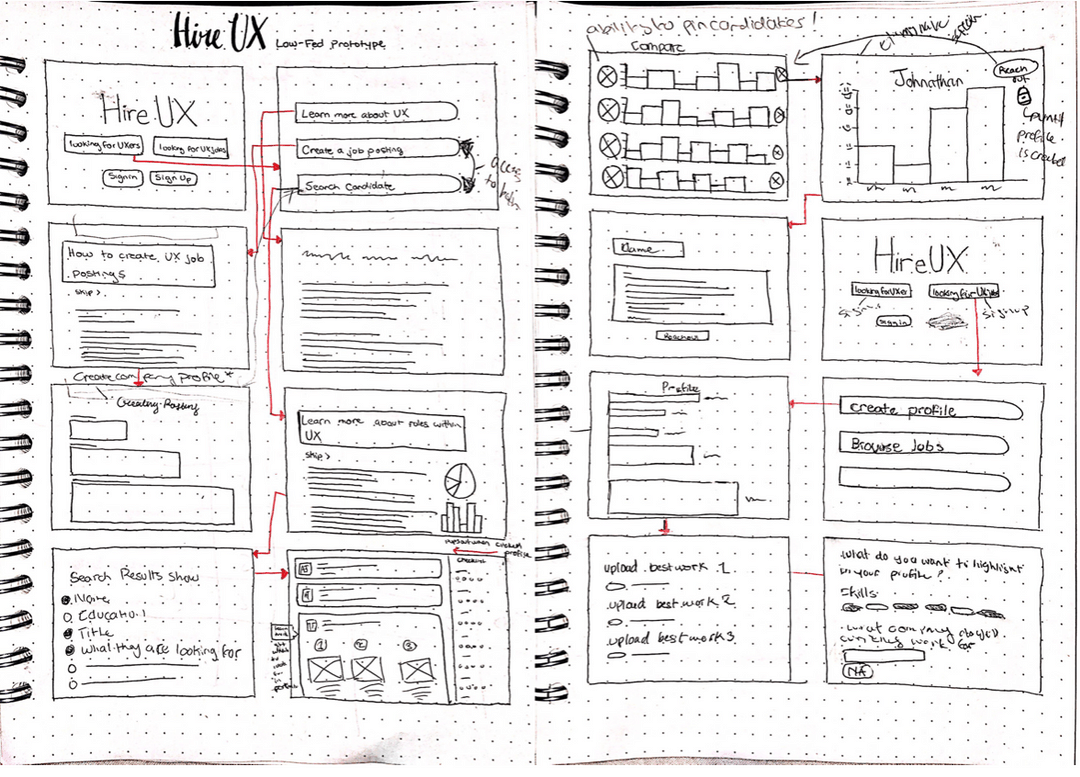 Hire UX Low-Fed Prototype
Hire UX
looking for UXers
looking for UX jobs
Sign in
Sign Up
Learn more about UX
Create a job posting
Search Candidate
access
to
How to create UX job
postings
skip >
Create company profile *
Creating Posting
Learn more about roles within
UX
skip >
profile
Search Results show
Name
Education
Title
what they are looking for
1
2
3
ability to pin candidates!
Compare
Johnathan
Reach
out
profile
is created
Name
Hire UX
looking for UXer
looking for UX jobs
sign in
sign up?
Profile
create profile
Browse Jobs
upload best work 1
upload best work 2
upload best work 3
what do you want to highlight
in your profile?
Skills
what company
work for
NA